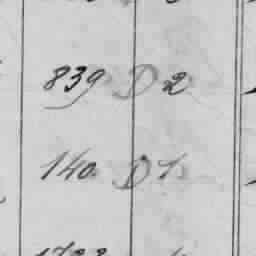 839 D 2
140 D 1